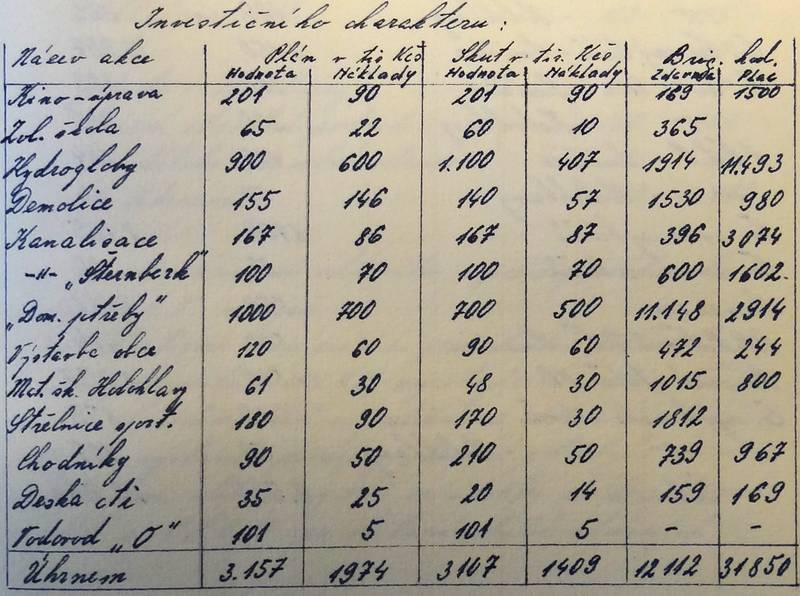 Investičního charakteru:
Název akce Plán v tis Kčs Skut v tis. Kčs Brig. hod.
Hodnota Náklady Hodnota Náklady Zdarma Plac
Kino-úprava 201 90 201 90 169 1500
Zvl. škola 65 22 60 10 365
Hydrogloby 900 600 1.100 407 1914 11.493
Demolice 155 146 140 57 1530 980
Kanalisace 167 86 167 87 396 3074
-"- "Šternberk" 100 70 100 70 600 1602.
"Dom. potřeby" 1000 700 700 500 11.148 2914
Výstavba obce 120 60 90 60 472 244
Mat. šk. Holohlavy 61 30 48 30 1015 800
Střelnice sport. 180 90 170 30 1812
Chodníky 90 50 210 50 739 967
Deska cti 35 25 20 14 159 169
Vodovod "O" 101 5 101 5 - -
Úhrnem 3.157 1974 3107 1409 12112 31850